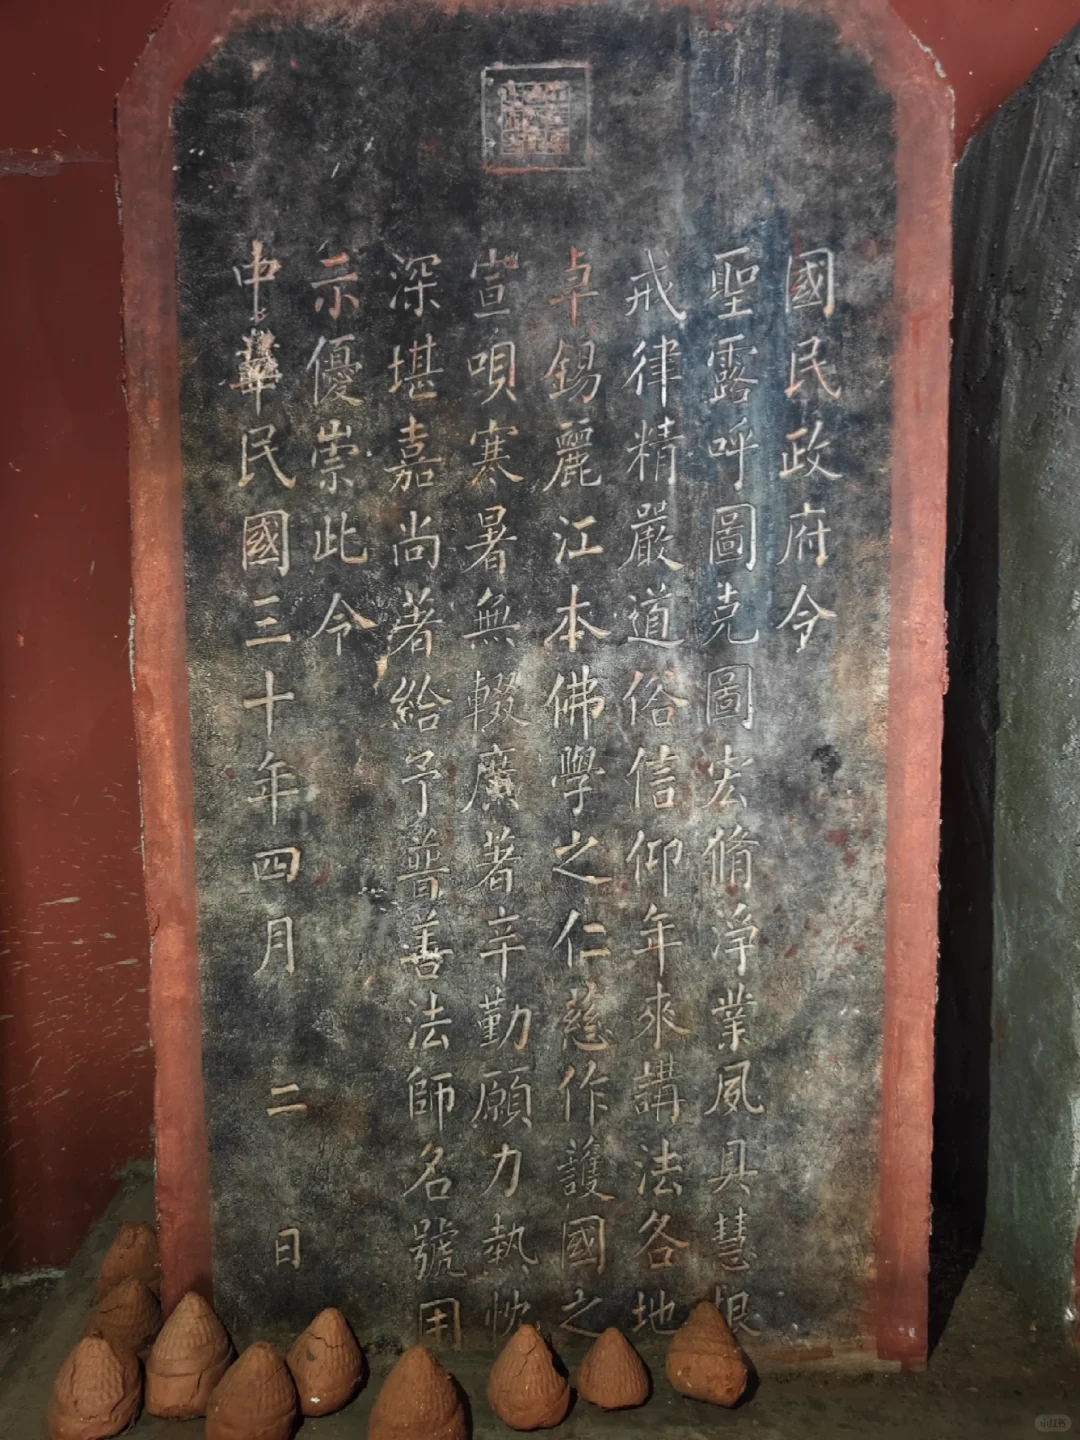 國民政府令
聖露呼圖克圖宏脩淨業夙具慧根
戒律精嚴道俗信仰年來講法各地
卓錫麗江本佛學之仁慈作護國之
宣唄寒暑無輟廣著辛勤願力熱忱
深堪嘉尚著給予普善法師名號用
示優崇此令
中華民國三十年四月二日
小红书